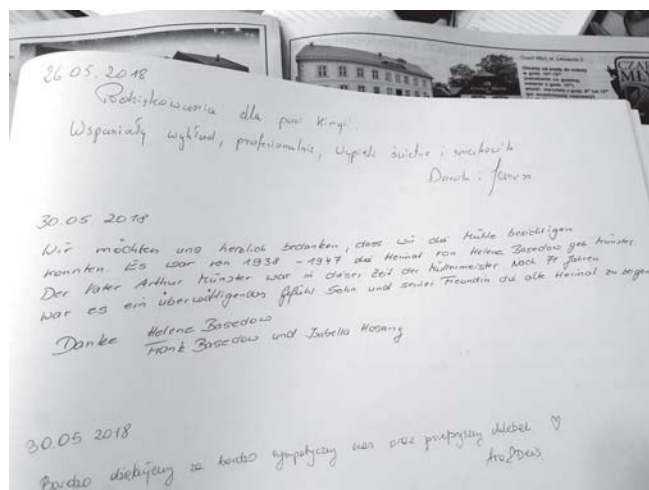 CZAR
MŁY
26 05. 2018
Podziękowania dla pani Kingi.
Wspaniały wykład, profesjonalnie, wypieki świetne i smakowite
Dorota i Janusz
30.05. 2018
Wir möchten uns herzlich bedanken, dass wir die Mühle besichtigen
konnten. Es war von 1938 - 1947 die Heimat von Helene Basedow geb Münster
Der Vater Arthur Münster war in dieser Zeit der Müllermeister Nach 71 Jahren
war es ein überwältigendes Gefühl Sohn und seiner Freundin die alte Heimat zu zeigen
Danke Helene Basedow
Frank Basedow und Isabella Hosang
30.05 2018
Bardzo dziękujemy za bardzo sympatyczny czas oraz przepyszny chlebek ♡